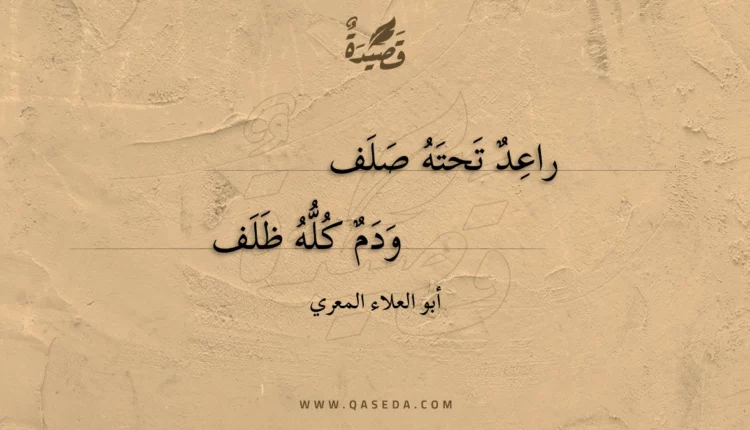 قَصِيْدَةٌ
راعِدٌ تَحتَهُ صَلَف
وَدَمٌ كُلُّهُ ظَلَف
أبو العلاء المعري
WWW.QASEDA.COM